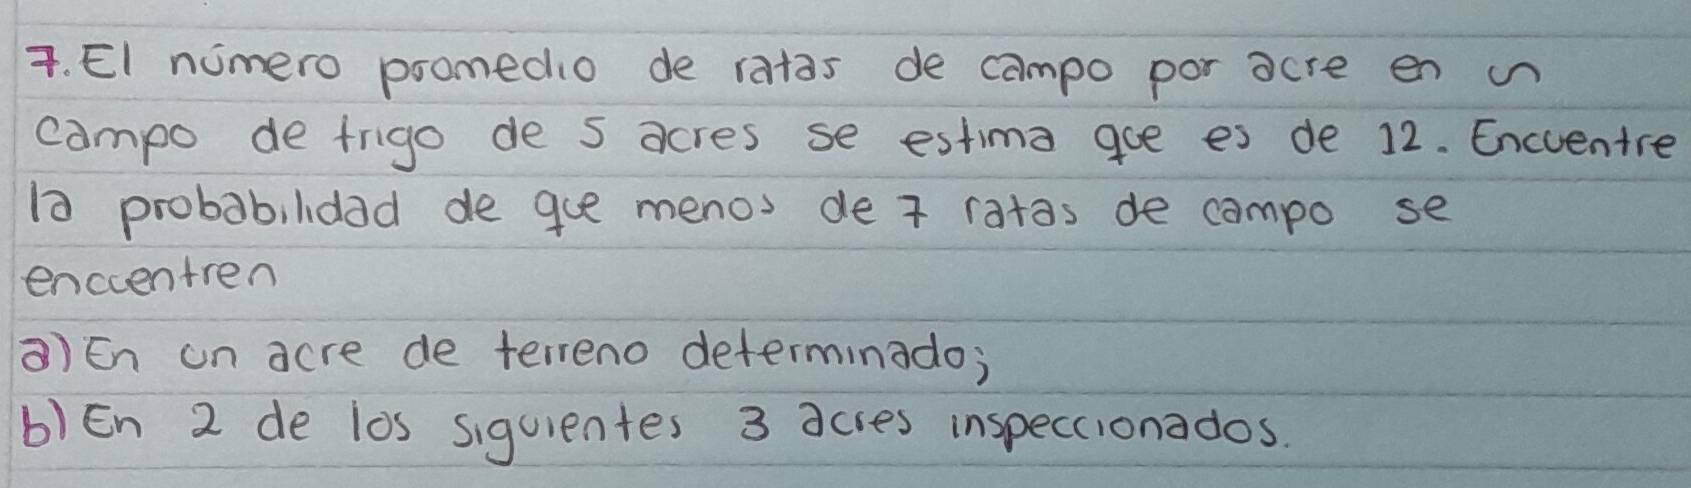 7. El número promedio de ratas de campo por acre en un
campo de trigo de 5 acres se estima que es de 12. Encuentre
la probabilidad de que menos de 7 ratas de campo se
encuentren
a) En un acre de terreno determinado;
b) En 2 de los siguientes 3 acres inspeccionados.